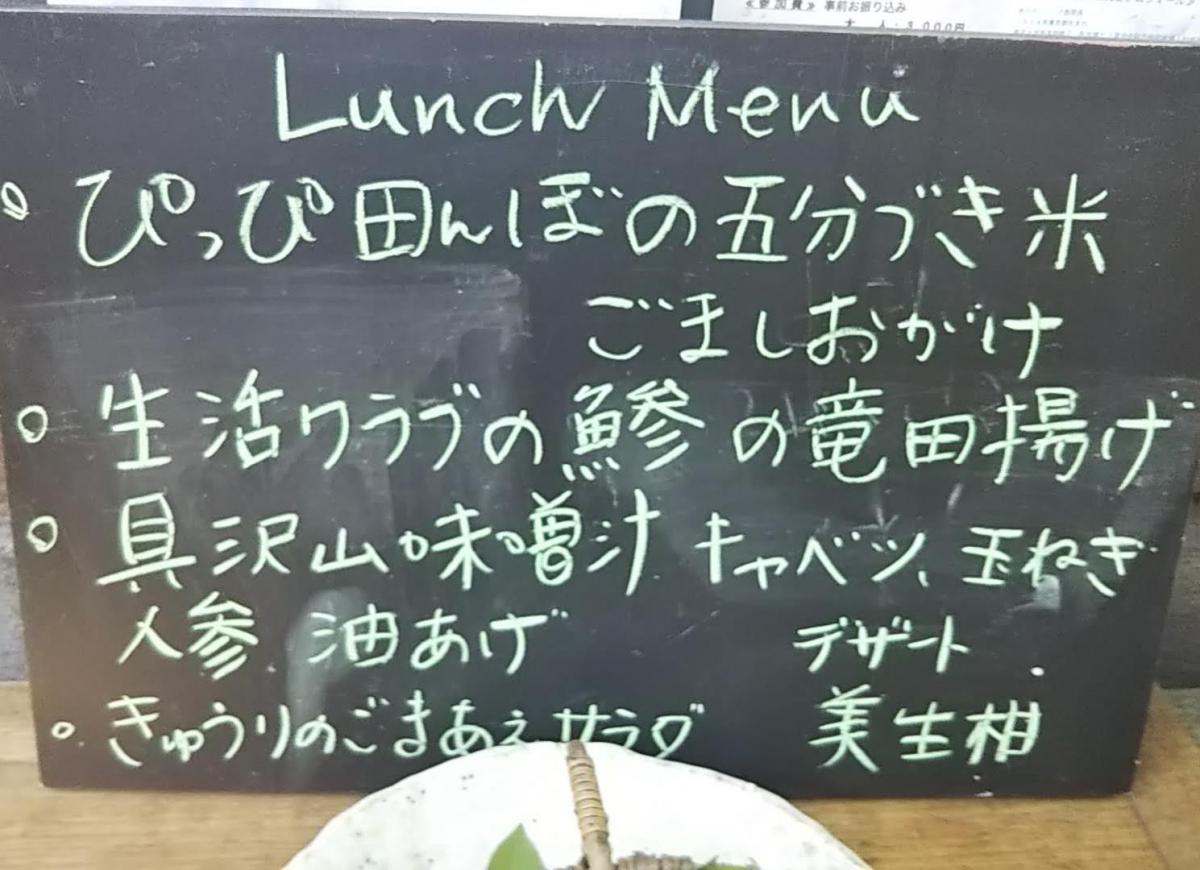 ≪参加費≫ 事前お振り込み
大 人：3,000円
Lunch Menu
○ ぴっぴ田んぼの五分づき米
ごましおがけ
○ 生活クラブの鯵の竜田揚げ
○ 具沢山味噌汁 キャベツ、玉ねぎ
人参 油あげ デザート
○ きゅうりのごまあえサラダ 美生柑